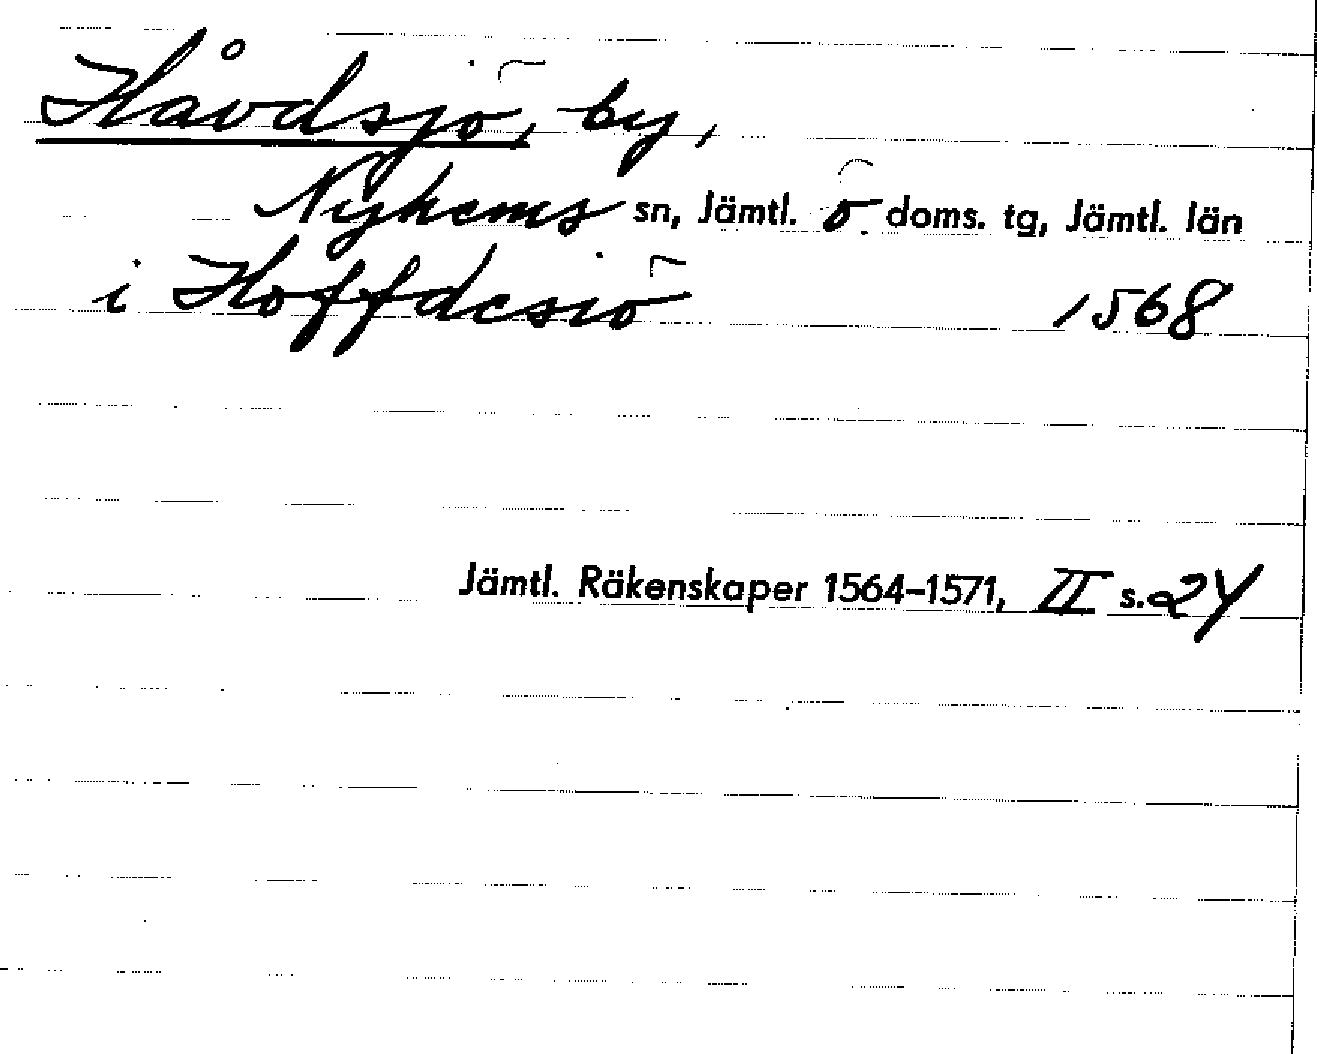 Håvdsjö, by,
Nyhems sn, Jämtl. ö doms. tg, Jämtl. län
i Hoffdesiö 1568
Jämtl. Räkenskaper 1564–1571, II s. 24